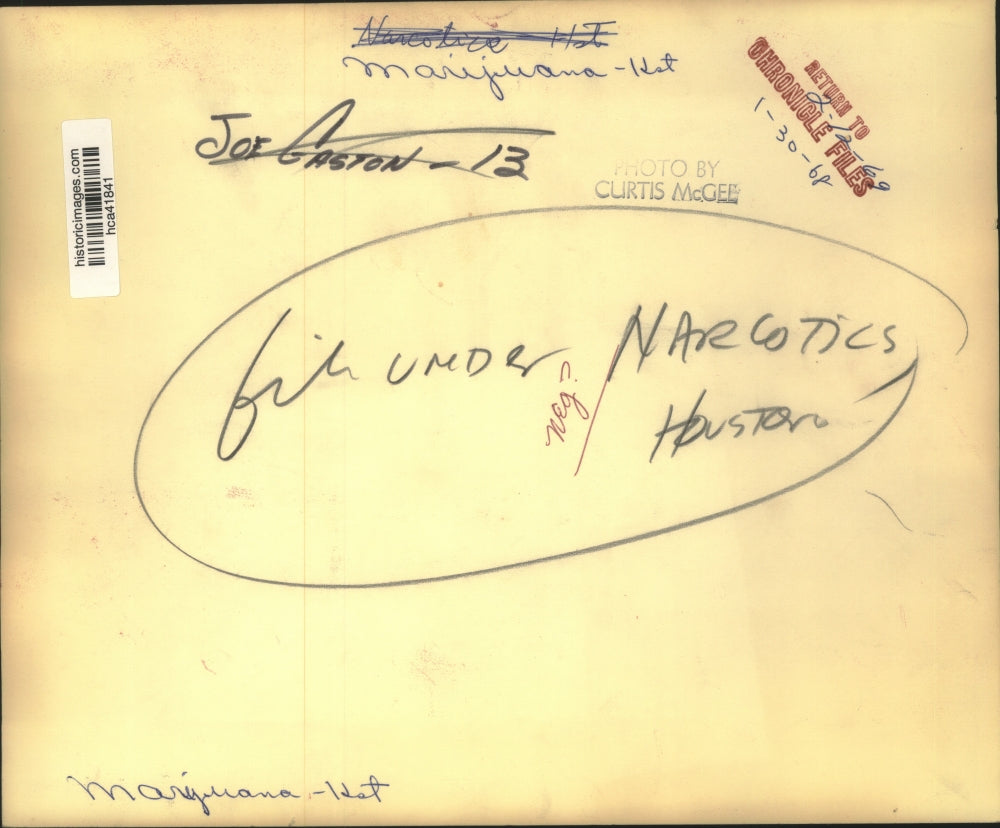 Narcotics Hst
Marijuana - Hst
RETURN TO
CHRONICLE FILES
2-12-69
1-30-68
JOE GASTON - 13
PHOTO BY
CURTIS McGEE
historicimages.com
hca41841
file UNDER NARCOTICS
neg?
HOUSTON
Marijuana - Hst